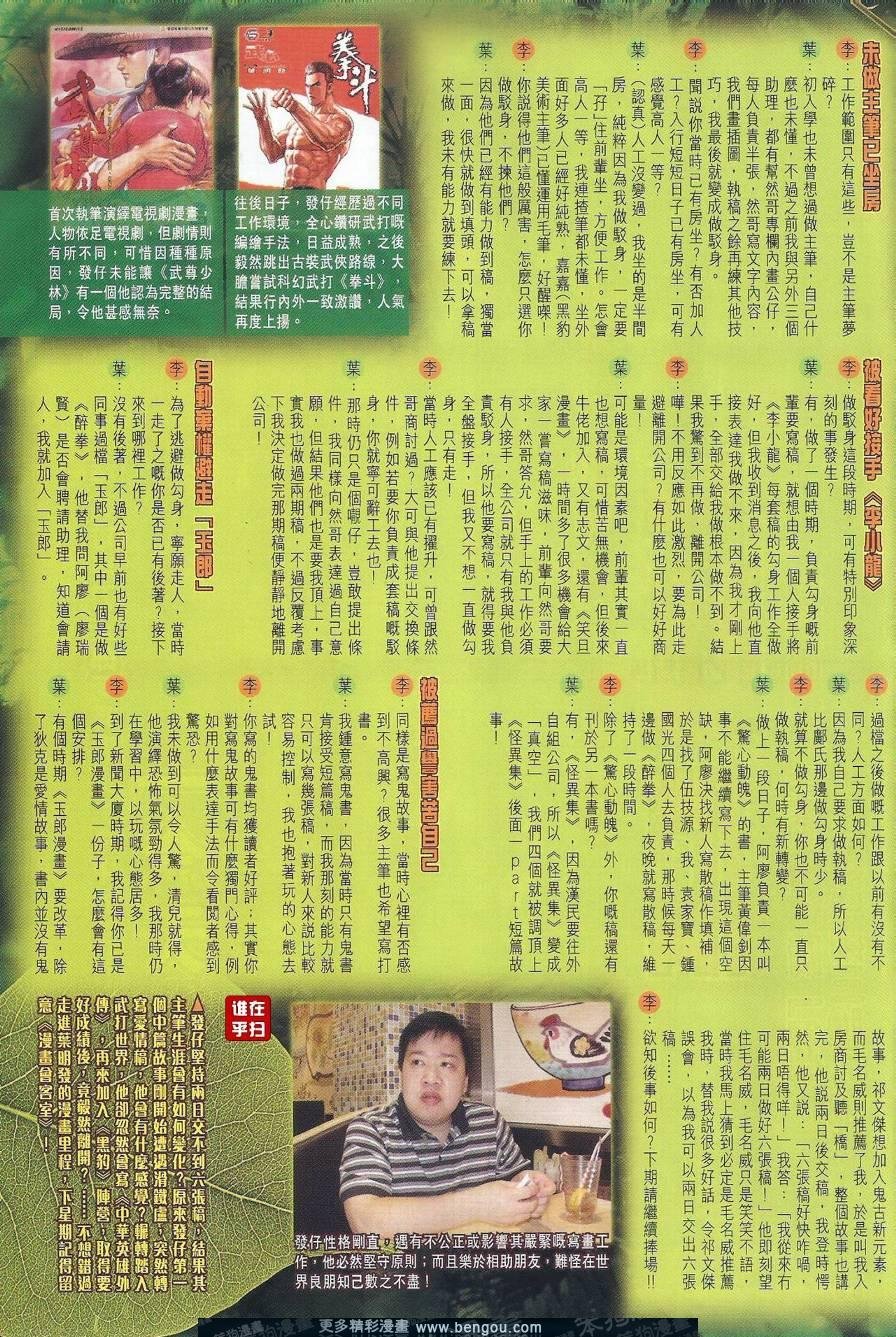 未做主筆已坐房
李：工作範圍只有這些，豈不是主筆夢
碎？
葉：初入學也未曾想過做主筆，自己什
麼也未懂，不過之前我與另外三個
助理，都有幫然哥專欄內畫公仔，
每人負責半張，然哥寫文字內容，
我們畫插圖，執稿之餘再練其他技
巧，我最後就變成做駁身。
李：聞說你當時已有房坐？有否加人
工？入行短短日子已有房坐，可有
感覺高人一等？
葉：（認真）人工沒變過，我坐的是半間
房，純粹因為我做駁身，一定要
「孖」住前輩坐，方便工作。怎會
高人一等，我連揸筆都未懂，坐外
面好多人已經好純熟，嘉嘉（黑豹
美術主筆）已懂運用毛筆，好醒㗎！
李：你說得他們這般厲害，怎麼只選你
做駁身，不揀他們？
葉：因為他們已經有能力做到稿，獨當
一面，很快就做到填頭，可以拿稿
來做，我未有能力就要練下去！
拳斗
往後日子，發仔經歷過不同
工作環境，全心鑽研武打嘅
編繪手法，日益成熟，之後
毅然跳出古裝武俠路線，大
膽嘗試科幻武打《拳斗》，
結果行內外一致激讚，人氣
再度上揚。
首次執筆演繹電視劇漫畫，
人物依足電視劇，但劇情則
有所不同，可惜因種種原
因，發仔未能讓《武尊少
林》有一個他認為完整的結
局，令他甚感無奈。
被着好接手《李小龍》
李：做駁身這段時期，可有特別印象深
刻的事發生？
葉：有，做了一個時期，負責勾身嘅前
輩要寫稿，就想由我一個人接手將
《李小龍》每套稿的勾身工作全做
好，但我收到消息之後，我向他直
接表達我做不來，因為我才剛上
手，全部交給我做根本做不到。結
果我驚到不再做，離開公司！
李：嘩！不用反應如此激烈，要為此走
避離開公司？有什麼也可以好好商
量！
葉：可能是環境因素吧，前輩其實一直
也想寫稿，可惜苦無機會，但後來
牛佬加入，又有志文，還有《笑旦
漫畫》，一時間多了很多機會給大
家一嘗寫稿滋味，前輩向然哥要
求，然哥答允，但手上的工作必須
有人接手，全公司就只有我與他負
責駁身，所以他要寫稿，就得要我
全盤接手，但我又不想一直做勾
身，只有走！
李：當時人工應該已有擢升，可曾跟然
哥商討過？大可與他提出交換條
件，例如若要你負責成套稿嘅駁
身，你就寧可辭工去也！
葉：那時仍只是個𡃁仔，豈敢提出條
件，我同樣向然哥表達過自己意
願，但結果他們也是要我頂上，事
實我也做過兩期稿，不過反覆考慮
下我決定做完那期稿便靜靜地離開
公司！
自動棄權避走「玉郎」
李：為了逃避做勾身，寧願走人，當時
一走了之嘅你是否已有後著？接下
來到哪裡工作？
葉：沒有後著，不過公司早前也有好些
同事過檔「玉郎」，其中一個是做
《醉拳》，他替我問阿廖（廖瑞
賢）是否會聘請助理，知道會請
人，我就加入「玉郎」。
李：過檔之後做嘅工作跟以前有沒有不
同？人工方面如何？
葉：因為我自己要求做執稿，所以人工
比鄺氏那邊做勾身時少。
李：就算不做勾身，你也不可能一直只
做執稿，何時有新轉變？
葉：做上一段日子，阿廖負責一本叫
《驚心動魄》的書，主筆黃偉釗因
事不能繼續寫下去，出現這個空
缺，阿廖決找新人寫散稿作填補，
於是找了伍技源、我、袁家寶、鍾
國光四個人去負責，那時候每天一
邊做《醉拳》，夜晚就寫散稿，維
持了一段時間。
李：除了《驚心動魄》外，你嘅稿還有
刊於另一本書嗎？
葉：有，《怪異集》，因為漢民要往外
自組公司，所以《怪異集》變成
「真空」，我們四個就被調頂上
《怪異集》後面一part短篇故
事！
被舊過學書苦自己
李：同樣是寫鬼故事，當時心裡有否感
到不高興？很多主筆也希望寫打
書。
葉：我鍾意寫鬼書，因為當時只有鬼書
肯接受短篇稿，而我那刻的能力就
只可以寫幾張稿，對新人來說比較
容易控制，我也抱著玩的心態去
試！
李：你寫的鬼書均獲讀者好評；其實你
對寫鬼故事可有什麼獨門心得，例
如用什麼表達手法而令看閱者感到
驚恐？
葉：我未做到可以令人驚，清兒就得，
他演繹恐怖氣氛勁得多，我那時仍
在學習中，以玩嘅心態居多！
李：到了新聞大廈時期，我記得你已是
《玉郎漫畫》一份子，怎麼會有這
個安排？
葉：有個時期《玉郎漫畫》要改革，除
了狄克是愛情故事，書內並沒有鬼
故事，祁文傑想加入鬼古新元素，
而毛名威則推薦了我，於是叫我入
房商討及聽「橋」，整個故事也講
完，他說兩日後交稿，我登時愕
然，他又說：「六張稿好快咋喎，
兩日唔得咩！」我答：「我從來冇
可能兩日做好六張稿！」他即刻望
住毛名威，毛名威只是笑笑不語，
當時我馬上猜到必定是毛名威推薦
我時，替我說很多好話，令祁文傑
誤會，以為我可以兩日交出六張
稿……
李：欲知後事如何？下期請繼續捧場！！
發仔性格剛直，遇有不公正或影響其嚴緊嘅寫畫工
作，他必然堅守原則；而且樂於相助朋友，難怪在世
界良朋知己數之不盡！
谁在
乎扫
▲發仔堅持兩日交不到六張稿，結果其
主筆生涯會有如何變化？原來發仔第一
個中篇故事剛開始遭遇滑鐵盧，突然轉
寫愛情稿，他會有什麼感覺？輾轉踏入
武打世界，他卻忽然會寫《中華英雄外
傳》，再來加入《黑豹》陣營，取得要
好成績後，竟毅然離開？……不想錯過
走進葉明發的漫畫里程，下星期記得留
意《漫畫會客室》！
更多精彩漫畫 www.bengou.com